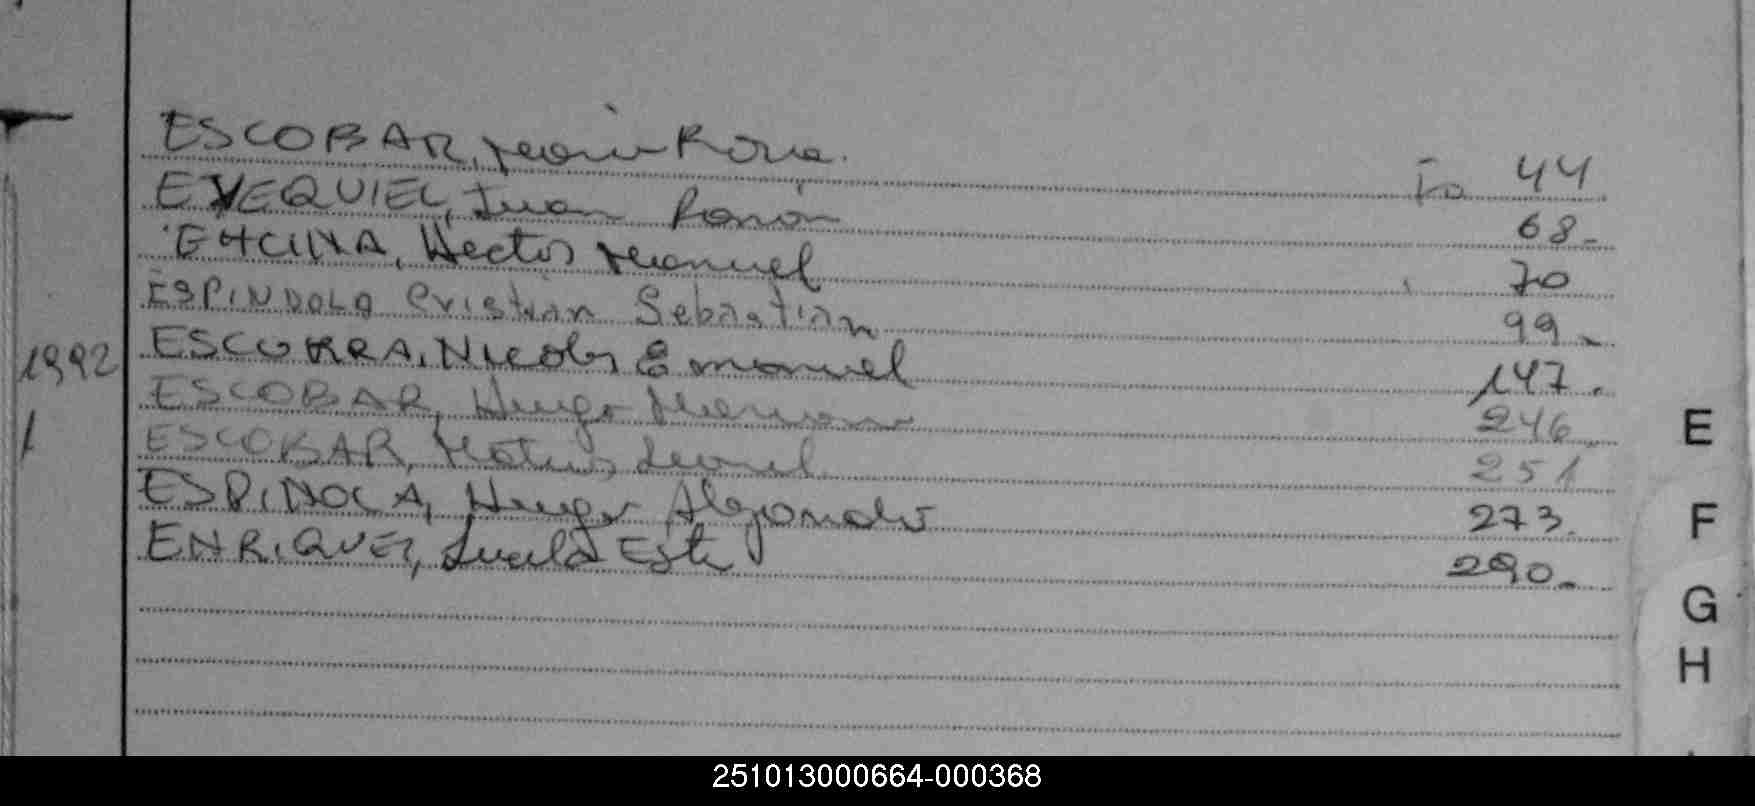 ESCOBAR, María Rosa. Fo 44
EXEQUIEL, Juan Ramón 68-
ENCINA, Hector Manuel 70
ESPINDOLA Cristian Sebastian 99-
1992 ESCURRA, Nicolas Emanuel 147.
ESCOBAR, Hugo Mariano 246
ESCOBAR, Matias Leonel 251
ESPINOLA, Hugo Alejandro 273.
ENRIQUEZ, Lucila Este 290-
E
F
G
H
251013000664-000368